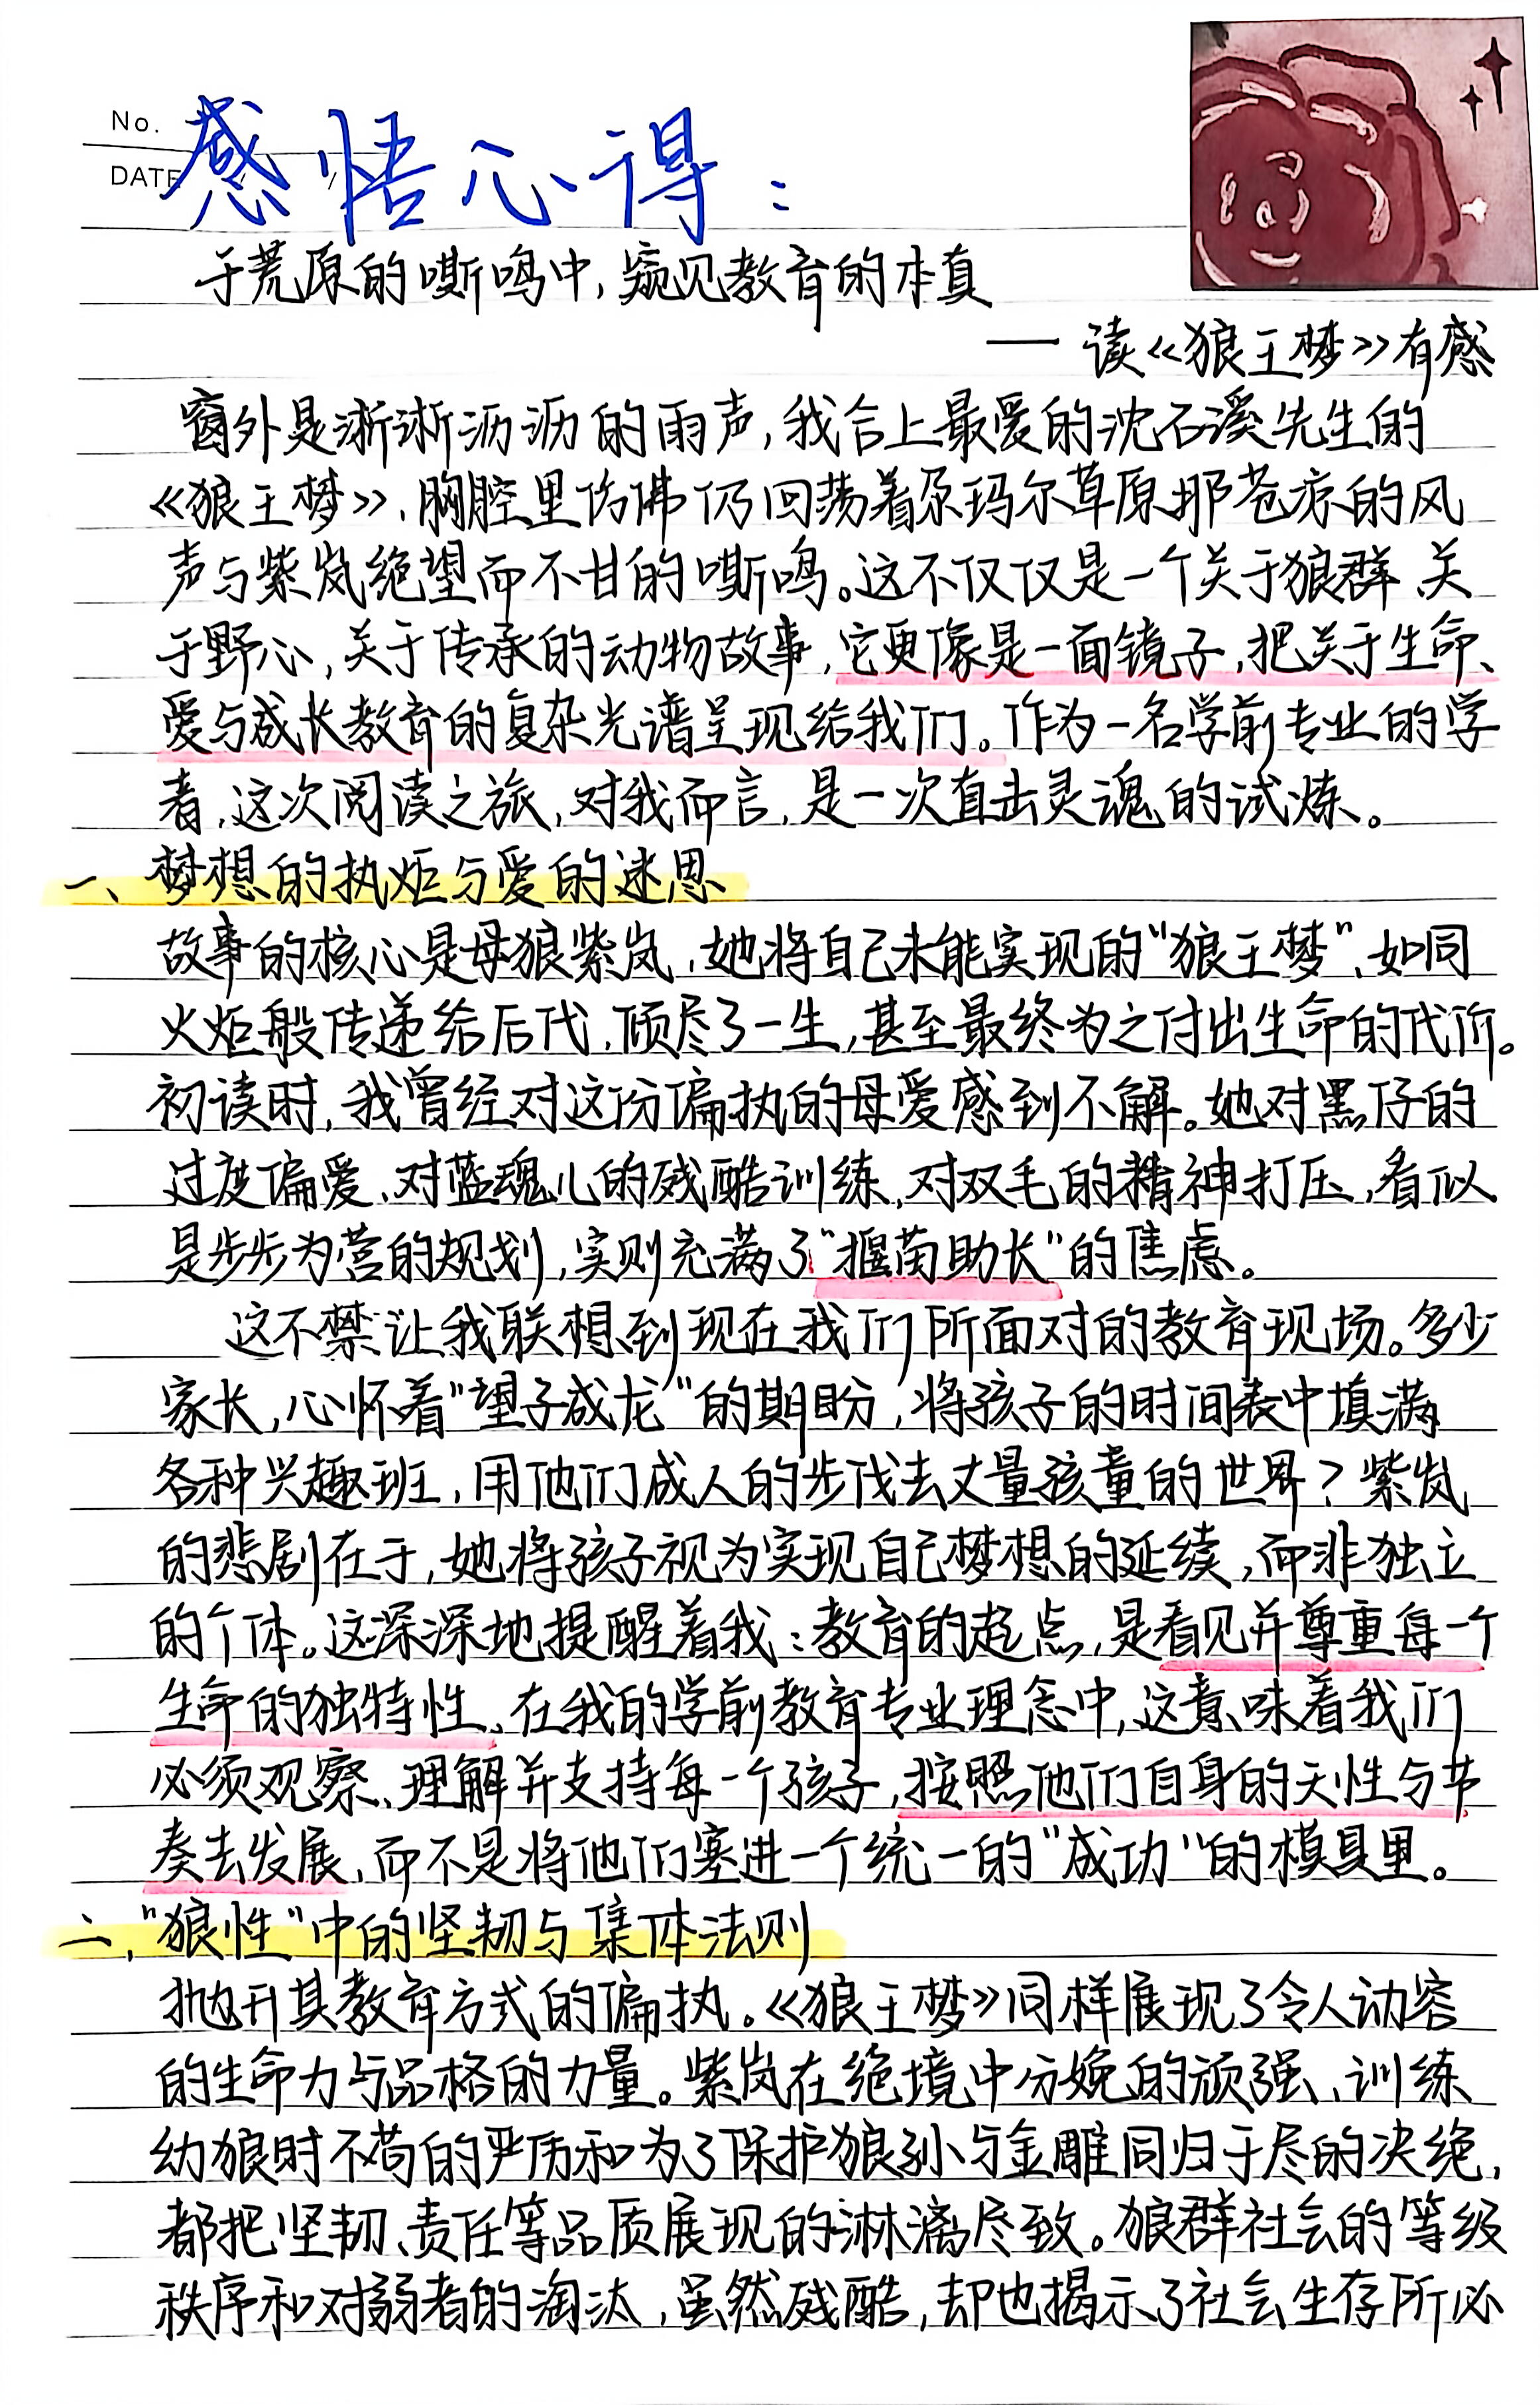 No.
DATE / /
感悟心得:
于荒原的嘶鸣中,窥见教育的本真
——读《狼王梦》有感
窗外是淅淅沥沥的雨声,我合上最爱的沈石溪先生的
《狼王梦》,胸腔里仿佛仍回荡着尕玛尔草原那苍凉的风
声与紫岚绝望而不甘的嘶鸣。这不仅仅是一个关于狼群、关
于野心,关于传承的动物故事,它更像是一面镜子,把关于生命、
爱与成长教育的复杂光谱呈现给我们。作为一名学前专业的学
者,这次阅读之旅,对我而言,是一次直击灵魂的试炼。
一、梦想的执炬与爱的迷思
故事的核心是母狼紫岚,她将自己未能实现的"狼王梦",如同
火炬般传递给后代,倾尽了一生,甚至最终为之付出生命的代价。
初读时,我曾经对这份偏执的母爱感到不解。她对黑仔的
过度偏爱、对蓝魂儿的残酷训练,对双毛的精神打压,看似
是步步为营的规划,实则充满了"揠苗助长"的焦虑。
这不禁让我联想到现在我们所面对的教育现场。多少
家长,心怀着"望子成龙"的期盼,将孩子的时间表中填满
各种兴趣班,用他们成人的步伐去丈量孩童的世界?紫岚
的悲剧在于,她将孩子视为实现自己梦想的延续,而非独立
的个体。这深深地提醒着我:教育的起点,是看见并尊重每一个
生命的独特性。在我的学前教育专业理念中,这意味着我们
必须观察、理解并支持每一个孩子,按照他们自身的天性与节
奏去发展,而不是将他们塞进一个统一的"成功"的模具里。
二,"狼性"中的坚韧与集体法则
抛开其教育方式的偏执。《狼王梦》同样展现了令人动容
的生命力与品格的力量。紫岚在绝境中分娩的顽强、训练
幼狼时不苟的严厉和为了保护狼孙与金雕同归于尽的决绝,
都把坚韧、责任等品质展现的淋漓尽致。狼群社会的等级
秩序和对弱者的淘汰,虽然残酷,却也揭示了社会生存所必